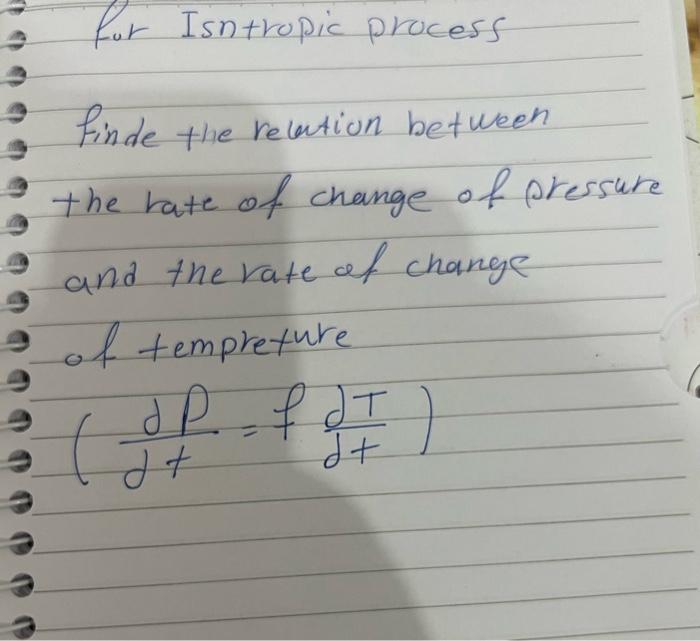 for Isntropic process
finde the relation between
the rate of change of pressure
and the rate of change
of tempreture
( dP/dt = f dT/dt )